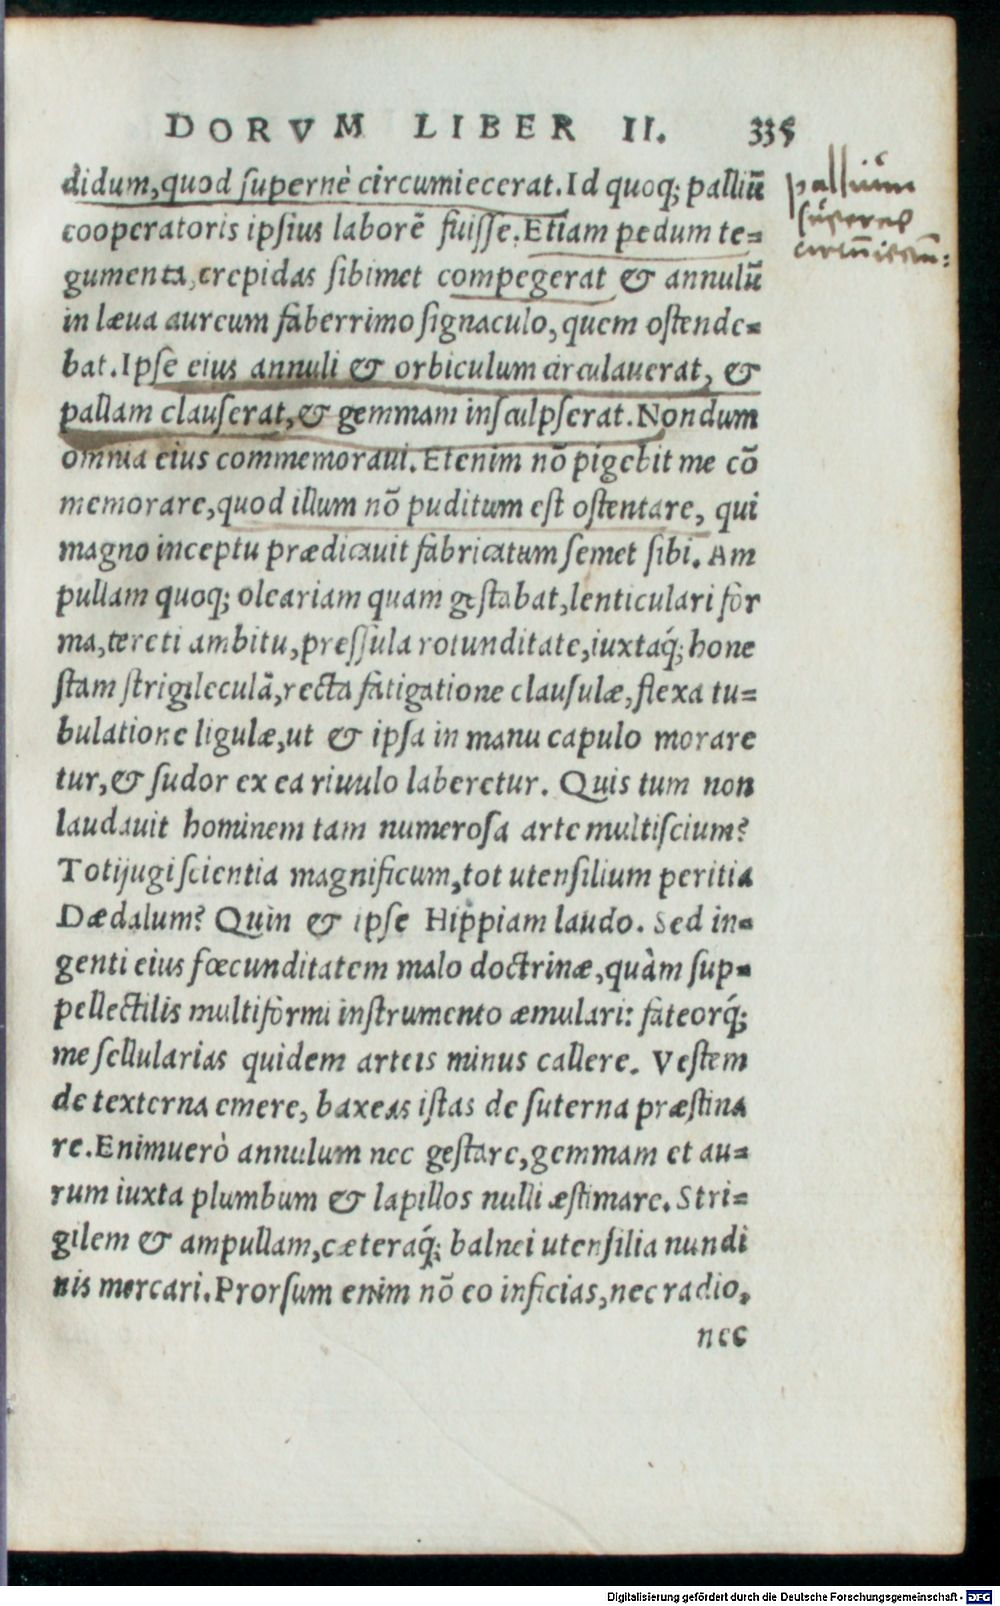 DORVM LIBER II. 335
didum, quod supernè circumiecerat. Id quoq; palliũ
cooperatoris ipsius laborẽ fuisse. Etiam pedum te=
gumenta, crepidas sibimet compegerat & annulũ
in læua aureum faberrimo signaculo, quem ostende=
bat. Ipse eius annuli & orbiculum circulauerat, &
pallam clauserat, & gemmam insculpserat. Nondum
omnia eius commemoraui. Etenim nõ pigebit me cõ
memorare, quod illum nõ puditum est ostentare, qui
magno inceptu prædicauit fabricatum semet sibi. Am
pullam quoq; oleariam quam gestabat, lenticulari for
ma, tereti ambitu, pressula rotunditate, iuxtaq́; hone
stam strigileculã, recta fatigatione clausulæ, flexa tu=
bulatione ligulæ, ut & ipsa in manu capulo morare
tur, & sudor ex ea riuulo laberetur. Quis tum non
laudauit hominem tam numerosa arte multiscium?
Totijugi scientia magnificum, tot utensilium peritia
Dædalum? Quin & ipse Hippiam laudo. Sed in=
genti eius fœcunditatem malo doctrinæ, quàm sup=
pellectilis multiformi instrumento æmulari: fateorq́;
me sellularias quidem arteis minus callere. Vestem
de texterna emere, baxeas istas de suterna præstina
re. Enimuerò annulum nec gestare, gemmam et au=
rum iuxta plumbum & lapillos nulli æstimare. Stri=
gilem & ampullam, cæteraq́; balnei utensilia nundi
nis mercari. Prorsum enim nõ eo inficias, nec radio,
nec
pallium
Digitalisierung gefördert durch die Deutsche Forschungsgemeinschaft - DFG